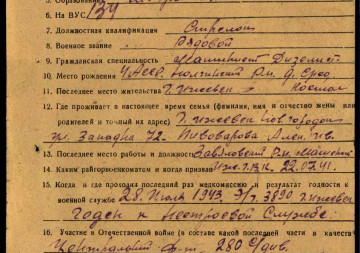 6. На ВУС 134
7. Должностная квалификация Стрелок
8. Военное звание Рядовой
9. Гражданская специальность Машинист Дизелист
10. Место рождения
11. Последнее место жительства г. Ижевск
12. Где проживает в настоящее время семья (фамилия, имя и отчество жены или
родителей и точный их адрес) г. Ижевск
Запада 72. Пивоварова
13. Последнее место работы и должность Завьяловский
14. Каким райгорвоенкоматом и когда призван 22.07.41.
15. Когда и где проходил последний раз медкомиссию и результат годности к
военной службе 28. Июль 1943 Э/г 3890 г. Ижевск
Годен к нестроевой Службе.
16. Участие в Отечественной войне (в составе какой последней части и в качестве
280 С/див.